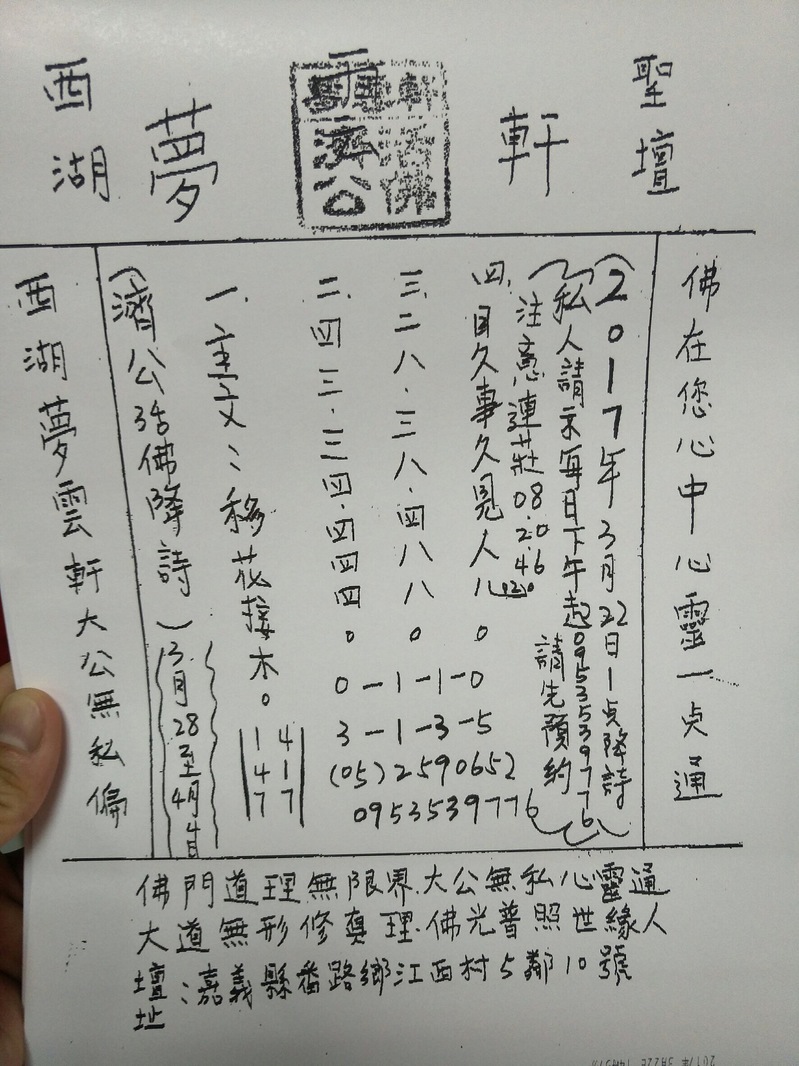 西湖 夢雲軒 聖壇
濟公活佛
佛在您心中心靈一点通
(2017年3月22日1点降詩)
(私人請示每日下午起0953539776)
請先預約
注意連莊08.20.46
四.目久事久見人心020。0-5
三.二八.三八.四八八。1-3
二.四三.三四.四四四。1-1
0-3
(05)2590652
0953539776
一.主文:移花接木。
14
41
77
(濟公活佛降詩)
3月28至4月4日
西湖夢雲軒大公無私偏
佛門道理無限界.大公無私心靈通
大道無形修真理.佛光普照世緣人
壇址:嘉義縣番路鄉江西村5鄰10號